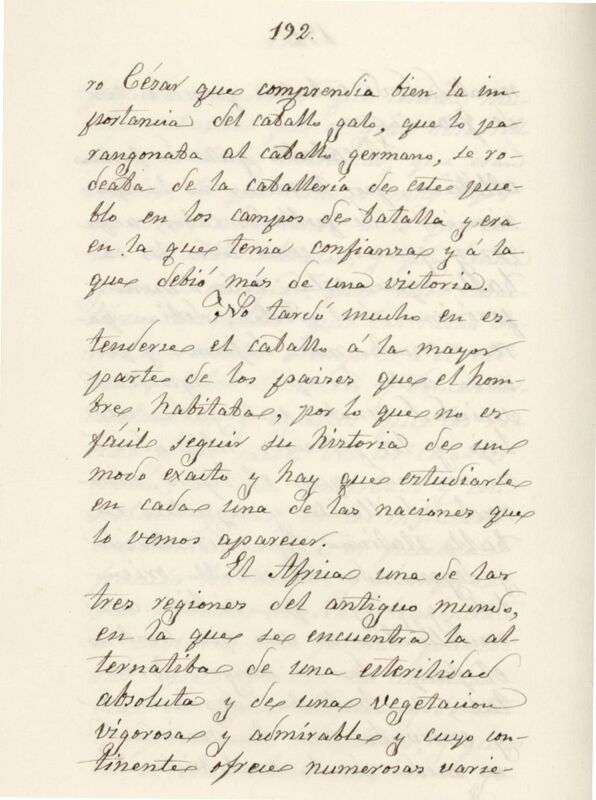 192.
ro César que comprendia bien la im-
portancia del caballo galo, que lo pa-
rangonaba al caballo germano, se ro-
deaba de la caballería de este pue-
blo en los campos de batalla y era
en la que tenia confianza y á la
que debió más de una victoria.
No tardó mucho en es-
tenderse el caballo á la mayor
parte de los paises que el hom-
bre habitaba, por lo que no es
fácil seguir su historia de un
modo exacto y hay que estudiarle
en cada una de las naciones que
lo vemos aparecer.
El Africa una de las
tres regiones del antiguo mundo,
en la que se encuentra la al-
ternatiba de una esterilidad
absoluta y de una vegetacion
vigorosa y admirable y cuyo con-
tinente ofrece numerosas varie-